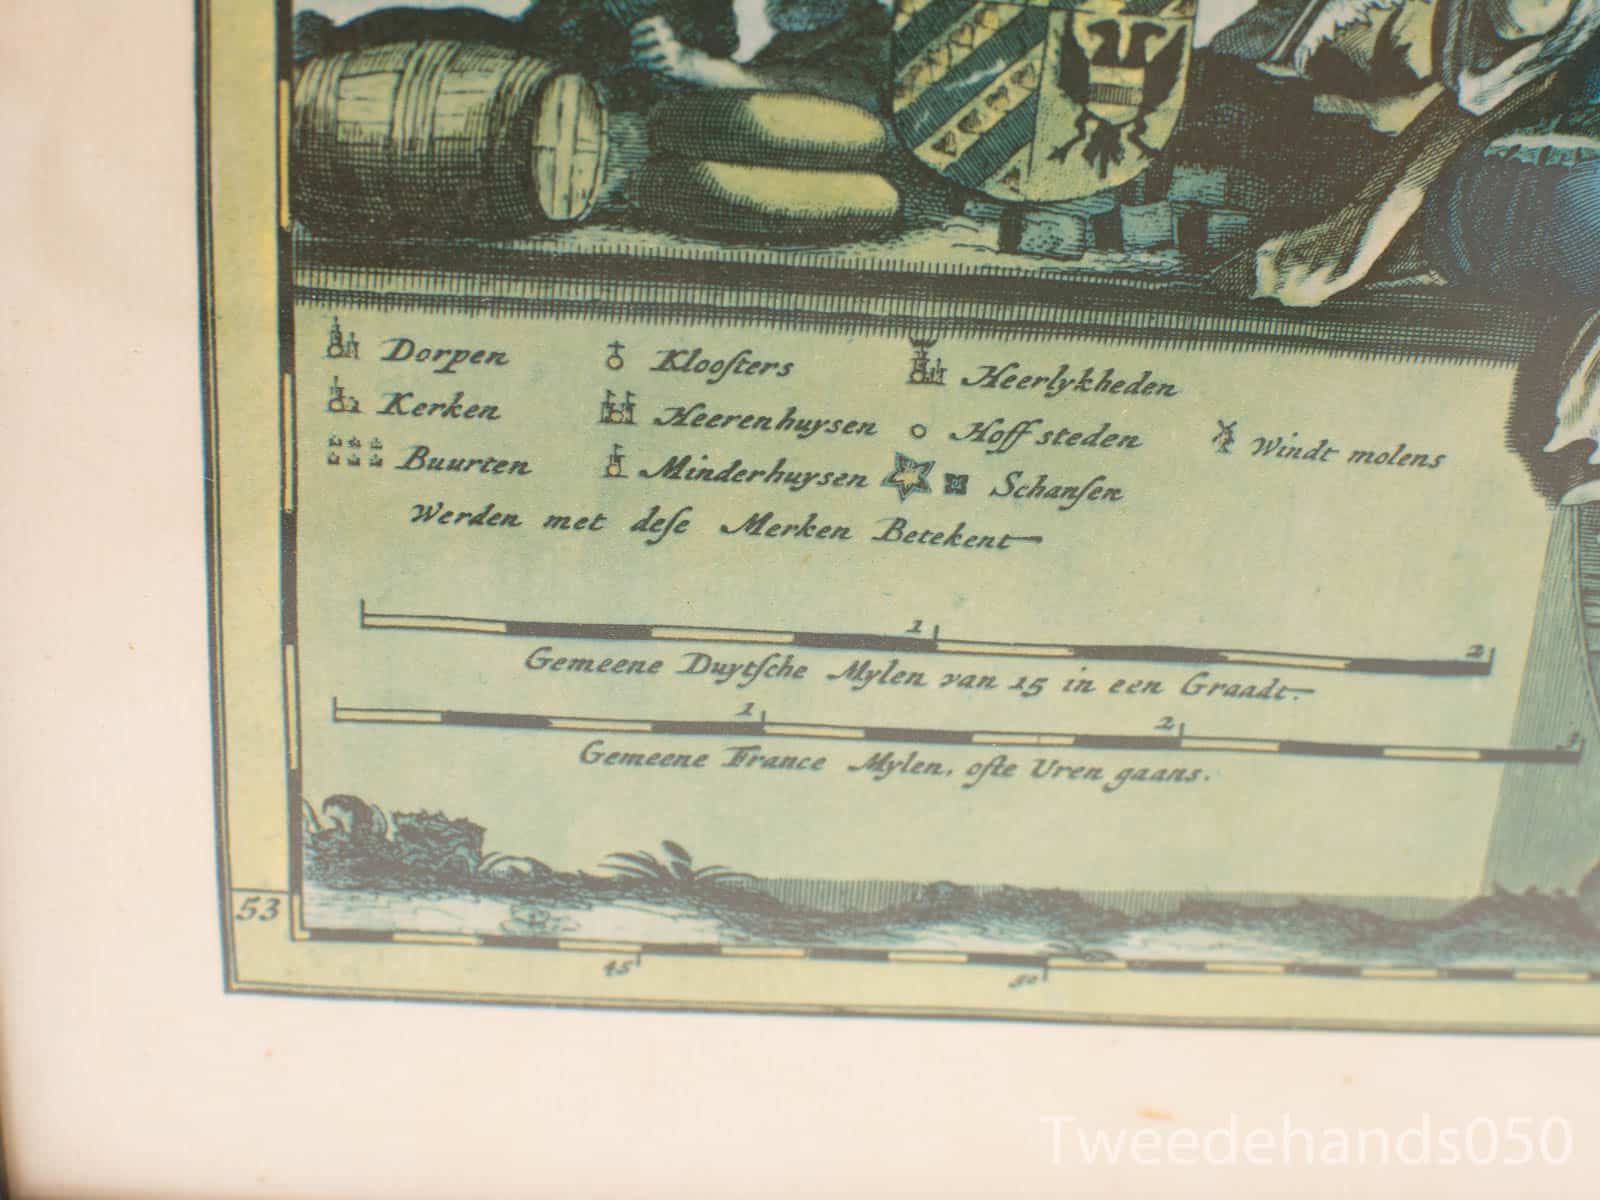 Dorpen Kloosters Heerlykheden
Kerken Heerenhuysen Hoff steden Windt molens
Buurten Minderhuysen Schansen
Werden met dese Merken Betekent
1 2
Gemeene Duytsche Mylen van 15 in een Graadt.
1 2 3
Gemeene France Mylen, ofte Uren gaans.
53
45 50
Tweedehands050